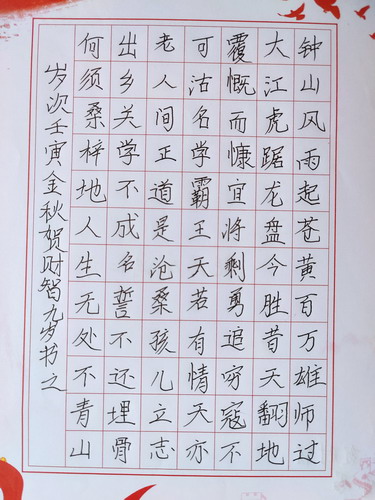 钟山风雨起苍黄百万雄师过
大江虎踞龙盘今胜昔天翻地
覆慨而慷宜将剩勇追穷寇不
可沽名学霸王天若有情天亦
老人间正道是沧桑孩儿立志
出乡关学不成名誓不还埋骨
何须桑梓地人生无处不青山
岁次壬寅金秋贺财智九岁书之